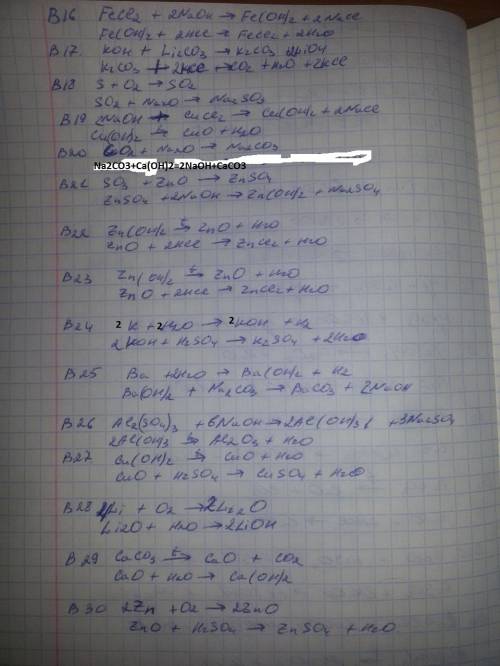 B16 FeCl2 + 2NaOH → Fe(OH)2 + 2NaCl
Fe(OH)2 + 2HCl → FeCl2 + 2H2O
B17. KOH + Li2CO3 → K2CO3 2LiOH
K2CO3 + 2HCl → CO2 + H2O + 2KCl
B18 S + O2 → SO2
SO2 + Na2O → Na2SO3
B19 2NaOH + CuCl2 → Cu(OH)2 + 2NaCl
Cu(OH)2 t→ CuO + H2O
B20 CO2 + Na2O → Na2CO3
Na2CO3+Ca(OH)2=2NaOH+CaCO3
B21 SO3 + ZnO → ZnSO4
ZnSO4 + 2NaOH → Zn(OH)2 + Na2SO4
B22 Zn(OH)2 t→ ZnO + H2O
ZnO + 2HCl → ZnCl2 + H2O
B23 Zn(OH)2 t→ ZnO + H2O
ZnO + 2HCl → ZnCl2 + H2O
B24 2K + 2H2O → 2KOH + H2
2KOH + H2SO4 → K2SO4 + 2H2O
B25 Ba + 2H2O → Ba(OH)2 + H2
Ba(OH)2 + Na2CO3 → BaCO3 + 2NaOH
B26 Al2(SO4)3 + 6NaOH → 2Al(OH)3↓ + 3Na2SO4
2Al(OH)3 t→ Al2O3 + H2O
B27 Cu(OH)2 t→ CuO + H2O
CuO + H2SO4 → CuSO4 + H2O
B28 4Li + O2 → 2Li2O
Li2O + H2O → 2LiOH
B29 CaCO3 t→ CaO + CO2
CaO + H2O → Ca(OH)2
B30 2Zn + O2 → 2ZnO
ZnO + H2SO4 → ZnSO4 + H2O